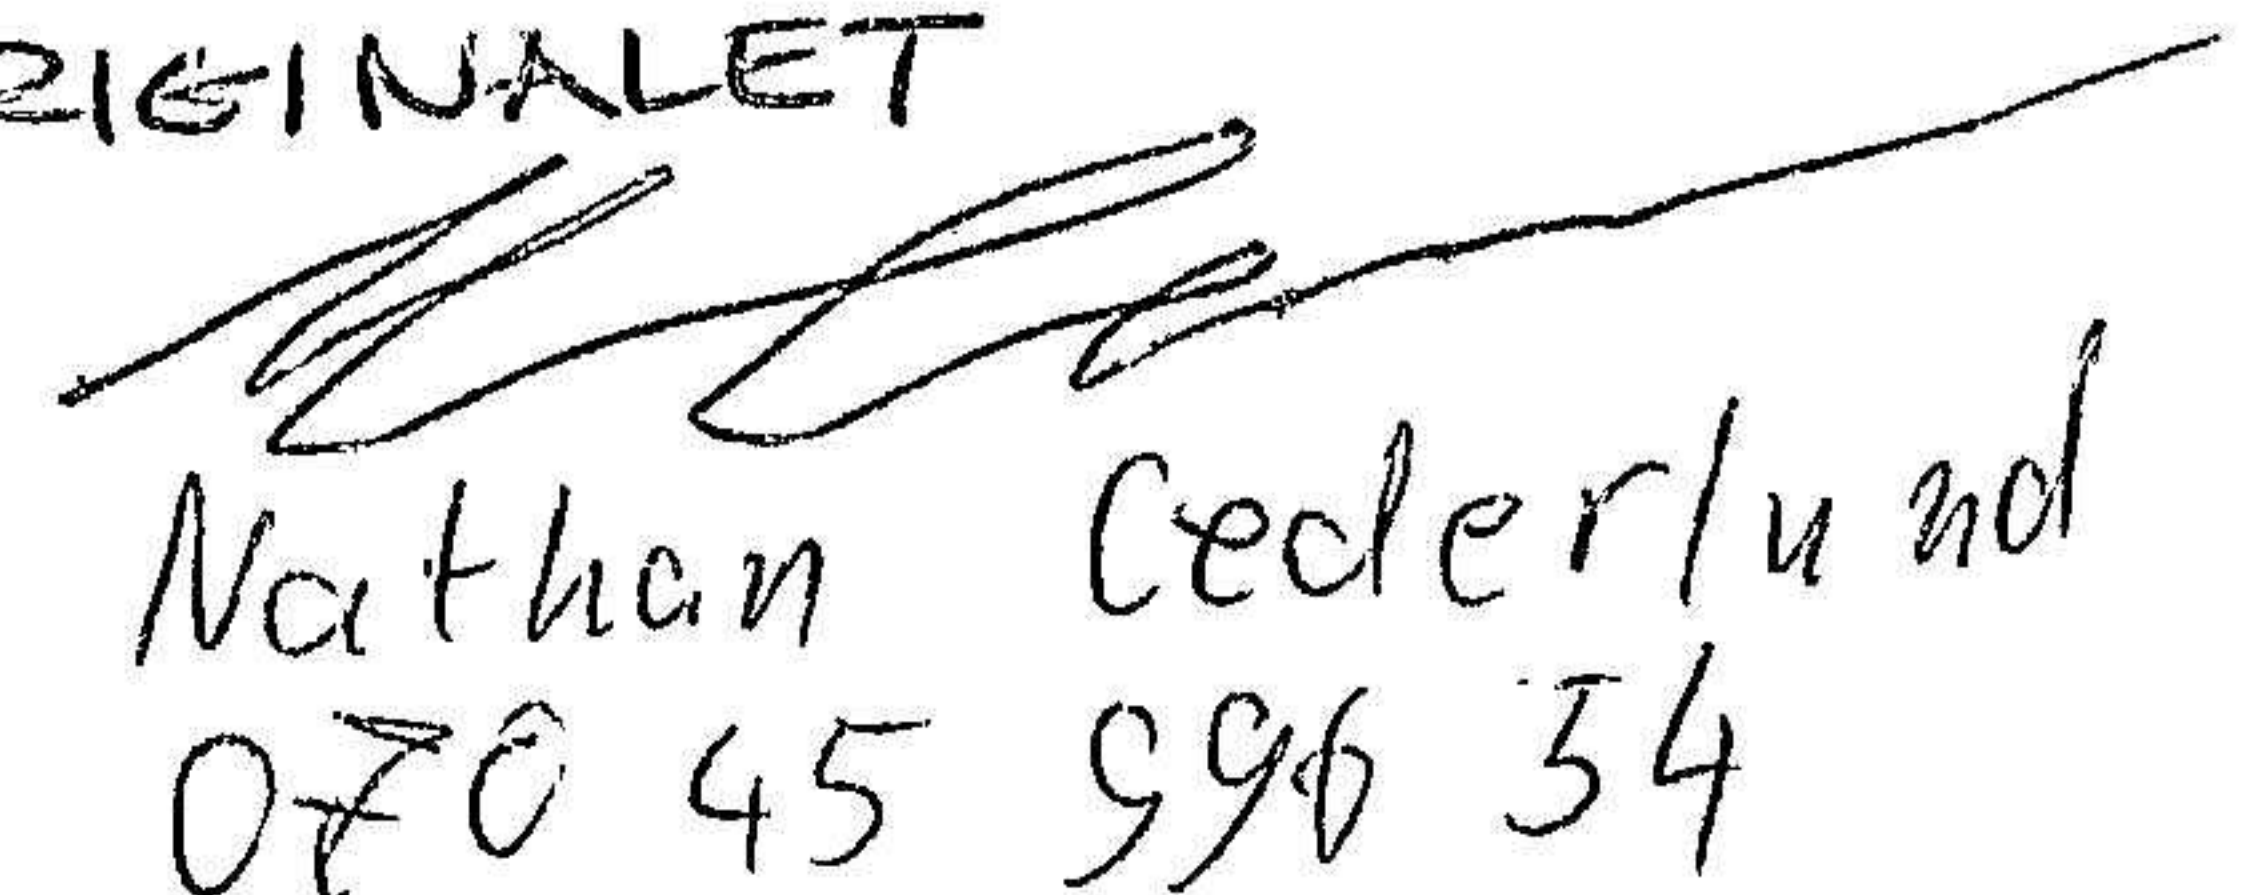 RIGINALET
Nathan Cederlund
070 45 996 54